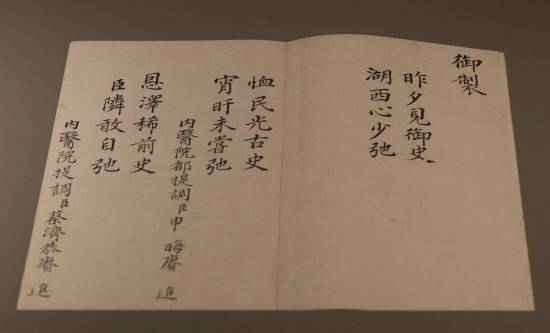 御製
昨夕見御史
湖西心少弛
恤民光古史
宵旰未嘗弛
內醫院都提調臣申 晦賡 進
恩澤稀前史
臣隣敢自弛
內醫院提調臣蔡濟恭賡 進